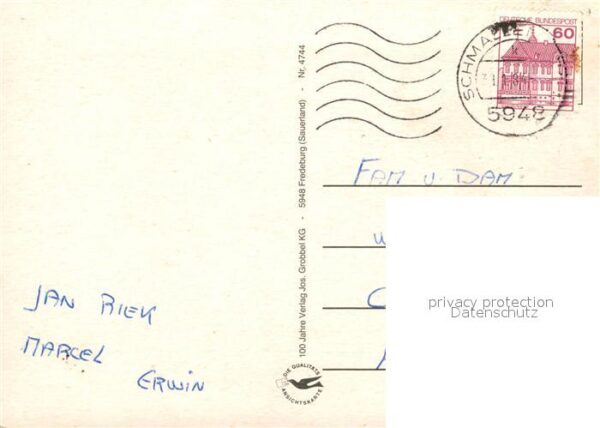 DEUTSCHE BUNDESPOST
60
SCHMALLE
5948
100 Jahre Verlag Jos. Grobbel KG · 5948 Fredeburg (Sauerland) · Nr. 4744
FAM U. DAM
privacy protection
Datenschutz
JAN RIEK
MARCEL
ERWIN
DIE QUALITÄTS
ANSICHTSKARTE